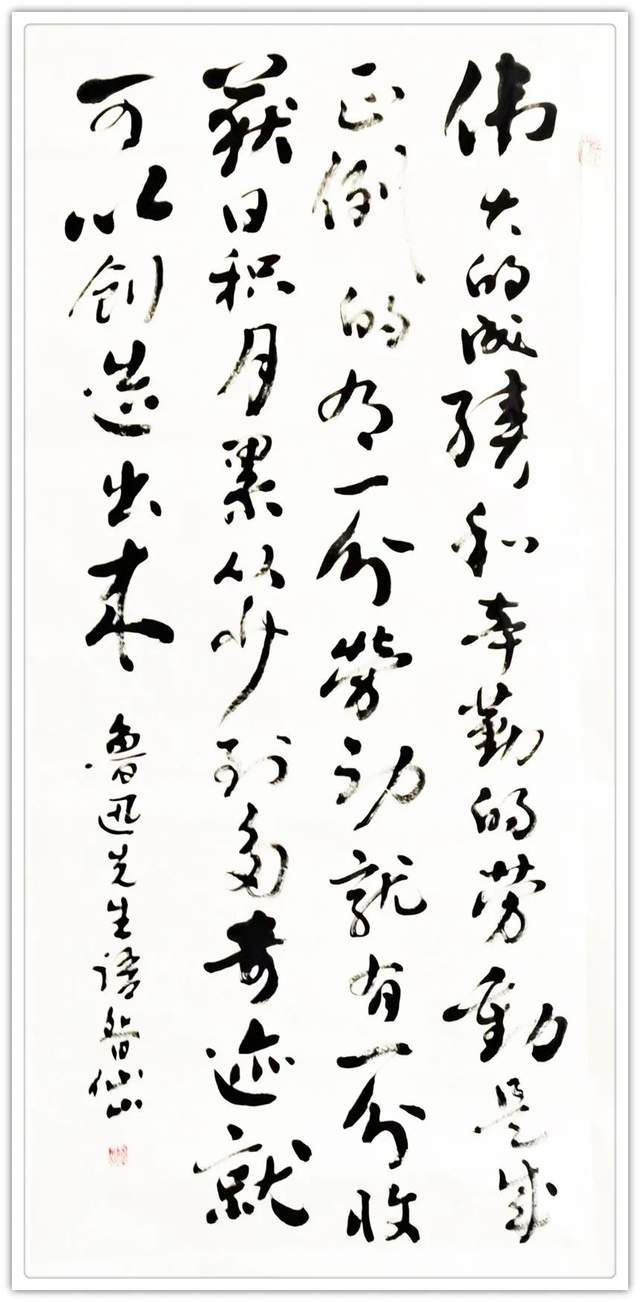 伟大的成绩和辛勤的劳动是成
正例的有一分劳动就有一分收
获日积月累从少到多奇迹就
可以创造出来
鲁迅先生语